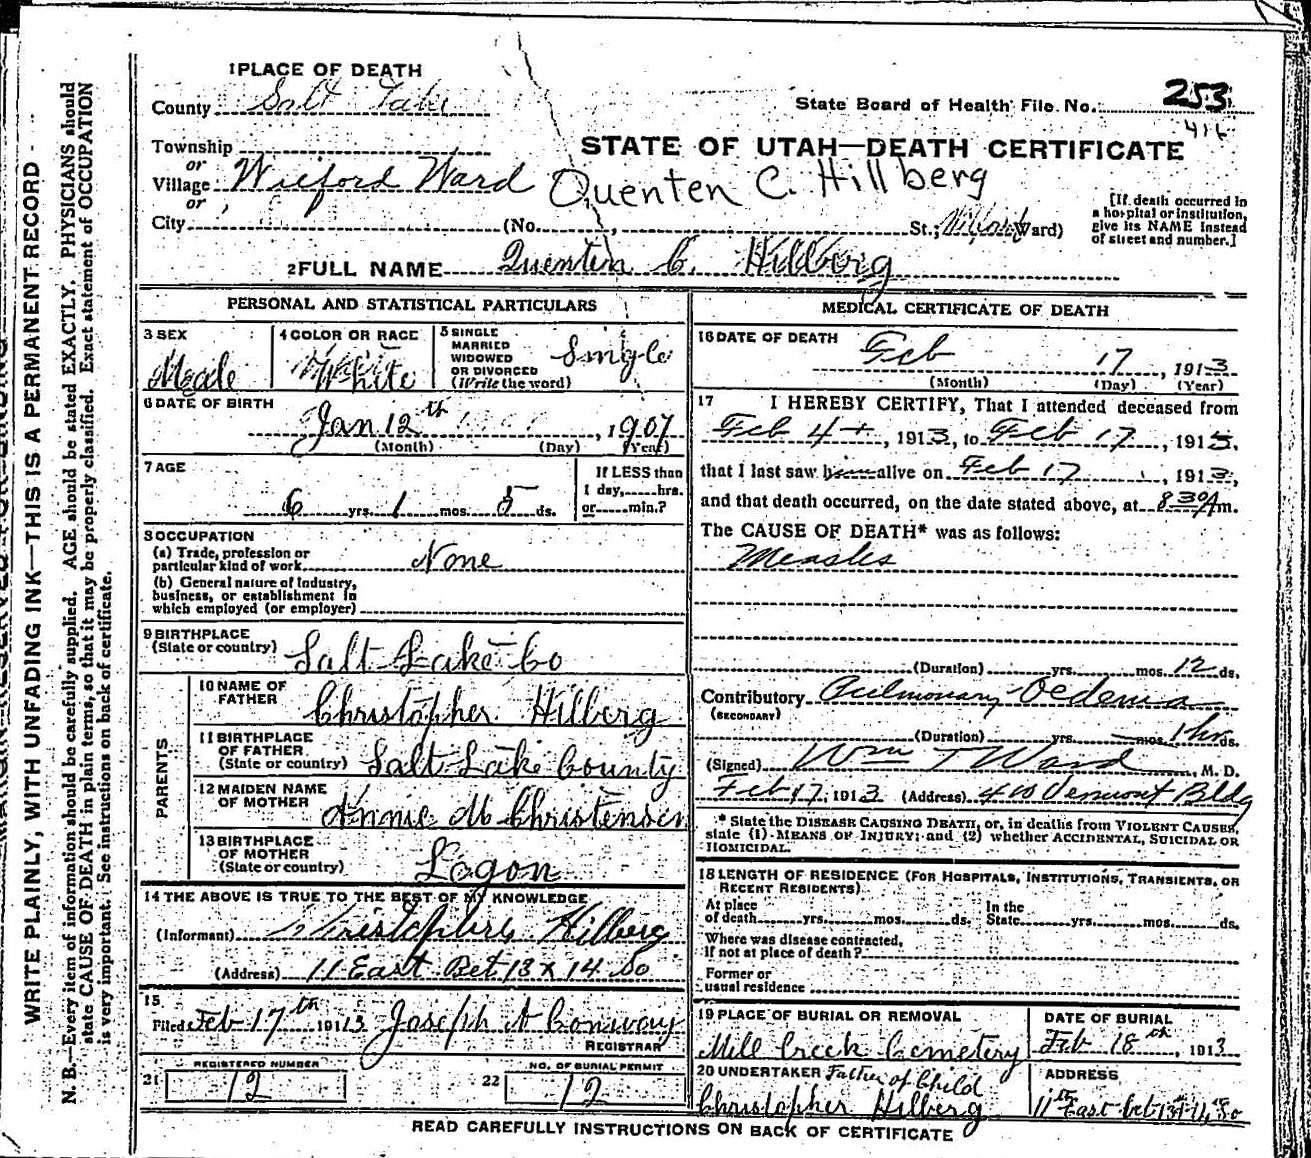 1 PLACE OF DEATH
County Salt Lake
State Board of Health File No. 253
416
Township
or
Village Wilford Ward
or
City
STATE OF UTAH—DEATH CERTIFICATE
Quenten C. Hillberg
(No. , St.; Wilford Ward)
[If death occurred in
a hospital or institution,
give its NAME instead
of street and number.]
2 FULL NAME Quentin C. Hillberg
PERSONAL AND STATISTICAL PARTICULARS
3 SEX
Male
4 COLOR OR RACE
White
5 SINGLE
MARRIED
WIDOWED
OR DIVORCED
(Write the word)
Single
6 DATE OF BIRTH
Jan 12th , 1907
(Month) (Day) (Year)
7 AGE
6 yrs. 1 mos. 5 ds.
If LESS than
1 day, hrs.
or min.?
8 OCCUPATION
(a) Trade, profession or
particular kind of work None
(b) General nature of industry,
business, or establishment in
which employed (or employer)
9 BIRTHPLACE
(State or country) Salt Lake Co
PARENTS
10 NAME OF
FATHER Christopher Hilberg
11 BIRTHPLACE
OF FATHER
(State or country) Salt Lake County
12 MAIDEN NAME
OF MOTHER Annie M Christensen
13 BIRTHPLACE
OF MOTHER
(State or country) Logon
14 THE ABOVE IS TRUE TO THE BEST OF MY KNOWLEDGE
(Informant) Christopher Hilberg
(Address) 11 East Bet 13 x 14 So
15
Filed Feb 17th 1913 Joseph A Conway
REGISTRAR
21 REGISTERED NUMBER
12
22 NO. OF BURIAL PERMIT
12
MEDICAL CERTIFICATE OF DEATH
16 DATE OF DEATH
Feb 17 , 1913
(Month) (Day) (Year)
17 I HEREBY CERTIFY, That I attended deceased from
Feb 4 , 1913, to Feb 17 , 1913,
that I last saw him alive on Feb 17 , 1913,
and that death occurred, on the date stated above, at 8 30 A m.
The CAUSE OF DEATH* was as follows:
Measles
(Duration) yrs. mos. 12 ds.
Contributory Pulmonary Oedema
(SECONDARY)
(Duration) yrs. mos. 1 hr ds.
(Signed) Wm T Ward , M. D.
Feb 17, 1913 (Address) 410 Vermont Bldg
* State the DISEASE CAUSING DEATH, or, in deaths from VIOLENT CAUSES,
state (1) MEANS OF INJURY; and (2) whether ACCIDENTAL, SUICIDAL OR
HOMICIDAL.
18 LENGTH OF RESIDENCE (FOR HOSPITALS, INSTITUTIONS, TRANSIENTS, OR
RECENT RESIDENTS)
At place
of death yrs. mos. ds.
In the
State yrs. mos. ds.
Where was disease contracted,
If not at place of death?
Former or
usual residence
19 PLACE OF BURIAL OR REMOVAL
Mill Creek Cemetery
DATE OF BURIAL
Feb 18th , 1913
20 UNDERTAKER Father of Child
Christopher Hilberg
ADDRESS
11th East bet 13th 14 So
READ CAREFULLY INSTRUCTIONS ON BACK OF CERTIFICATE
WRITE PLAINLY, WITH UNFADING INK—THIS IS A PERMANENT RECORD
N. B.—Every item of information should be carefully supplied. AGE should be stated EXACTLY. PHYSICIANS should
state CAUSE OF DEATH in plain terms, so that it may be properly classified. Exact statement of OCCUPATION
is very important. See instructions on back of certificate.